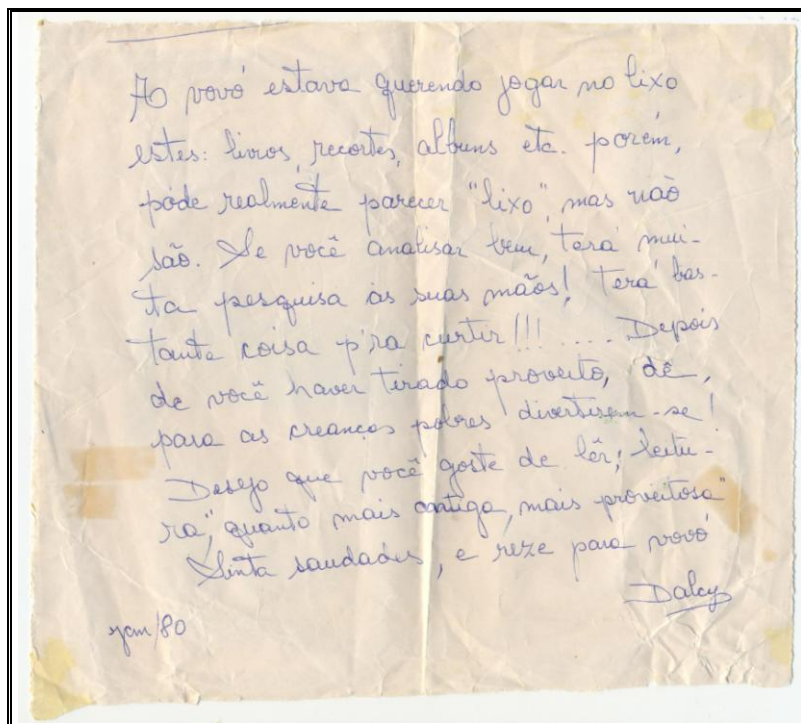 A vovó estava querendo jogar no lixo
estes: livros, recortes, albuns etc. porém,
póde realmente parecer "lixo", mas não
são. Se você analisar bem, terá mui-
ta pesquisa às suas mãos! Terá bas-
tante coisa p'ra curtir!!! .... Depois
de você haver tirado proveito, dê,
para as creanças pobres divertirem-se!
Desejo que você goste de lêr; leitu-
ra, "quanto mais antiga, mais proveitosa"
Sinta saudades, e reze para vovó
Dalcy
/80